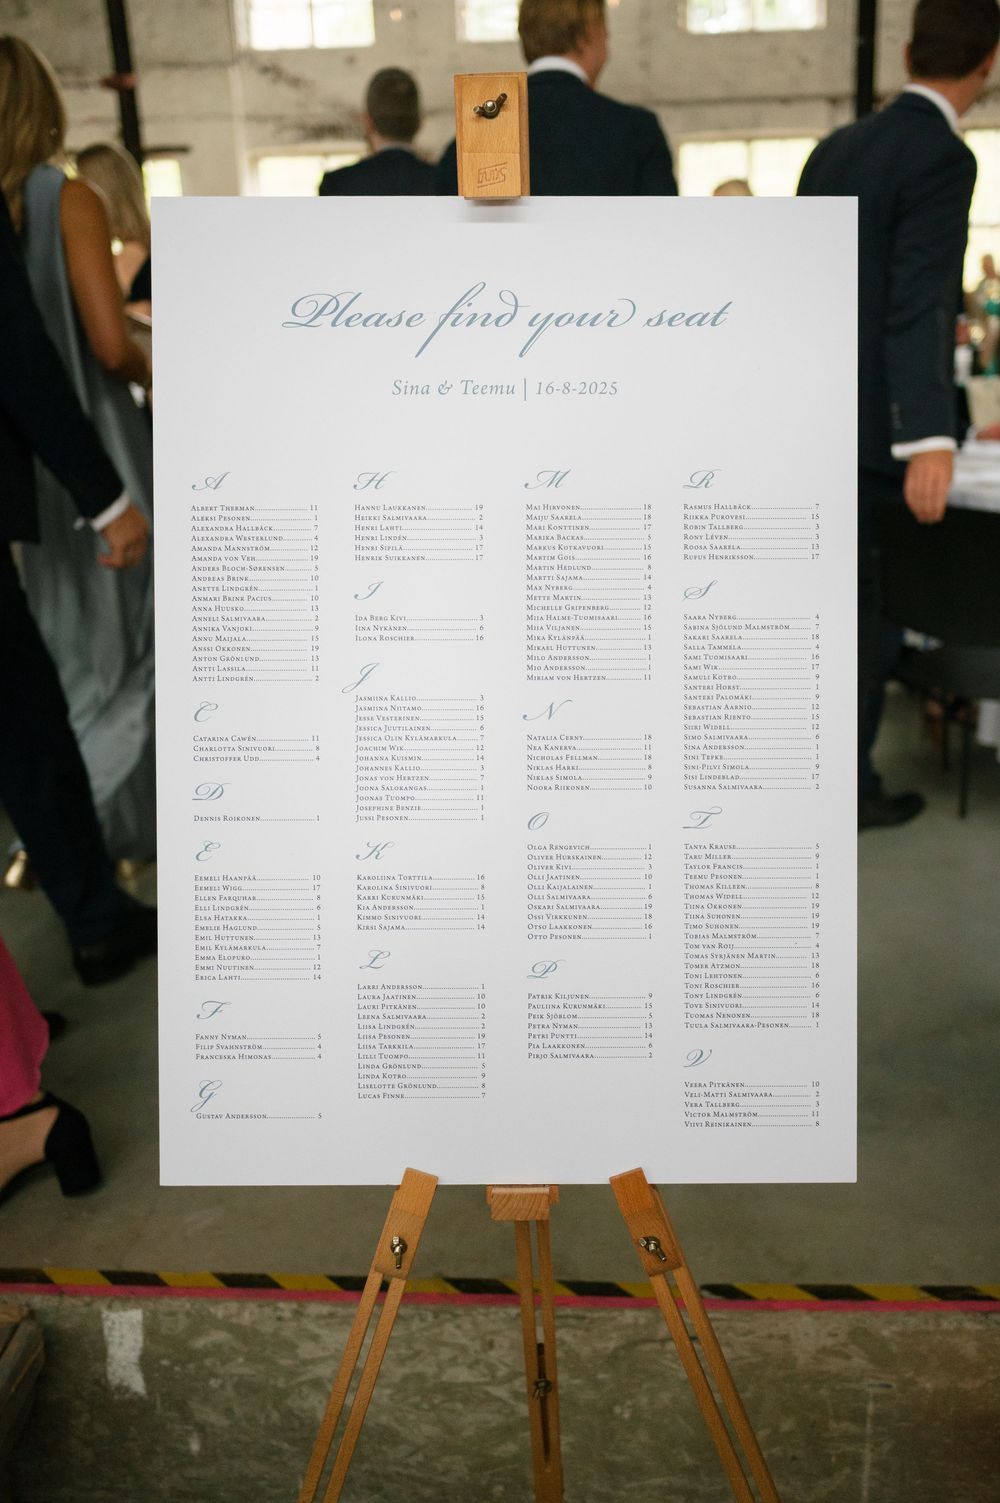 Please find your seat
Sina & Teemu | 16-8-2025
A
Albert Therman 11
Aleksi Pesonen 1
Alexandra Hallbäck 7
Alexandra Westerlund 4
Amanda Mannström 12
Amanda von Veh 19
Anders Bloch-Sørensen 5
Andreas Brink 10
Anette Lindgrén 1
Anmari Brink Pacius 10
Anna Huusko 13
Anneli Salmivaara 2
Annika Vanjoki 9
Annu Maijala 15
Anssi Okkonen 19
Anton Grönlund 13
Antti Lassila 11
Antti Lindgrén 2
C
Catarina Cawén 11
Charlotta Sinivuori 8
Christoffer Udd 4
D
Dennis Roikonen 1
E
Eemeli Haanpää 10
Eemeli Wigg 17
Ellen Farquhar 8
Elli Lindgrén 6
Elsa Hatakka 1
Emelie Haglund 5
Emil Huttunen 13
Emil Kylämarkula 7
Emma Elopuro 1
Emmi Nuutinen 12
Erica Lahti 14
F
Fanny Nyman 5
Filip Svahnström 4
Franceska Himonas 4
G
Gustav Andersson 5
H
Hannu Laukkanen 19
Heikki Salmivaara 2
Henri Lahti 14
Henri Lindén 3
Henri Sipilä 17
Henrik Suikkanen 17
I
Ida Berg Kivi 3
Iina Nykänen 6
Ilona Roschier 16
J
Jasmiina Kallio 3
Jasmiina Niitamo 16
Jesse Vesterinen 15
Jessica Juutilainen 6
Jessica Olin Kylämarkula 7
Joachim Wik 12
Johanna Kuismin 14
Johannes Kallio 3
Jonas von Hertzen 7
Joona Salokangas 1
Joonas Tuompo 11
Josephine Benzie 1
Jussi Pesonen 1
K
Karoliina Torttila 16
Karolina Sinivuori 8
Karri Kurunmäki 15
Kia Andersson 1
Kimmo Sinivuori 14
Kirsi Sajama 14
L
Larri Andersson 1
Laura Jaatinen 10
Lauri Pitkänen 10
Leena Salmivaara 2
Liisa Lindgrén 2
Liisa Pesonen 19
Liisa Tarkkila 17
Lilli Tuompo 11
Linda Grönlund 5
Linda Kotro 9
Liselotte Grönlund 8
Lucas Finne 7
M
Mai Hirvonen 18
Maiju Saarela 18
Mari Konttinen 17
Marika Backas 5
Markus Kotkavuori 15
Martim Gois 15
Martin Hedlund 8
Martti Sajama 14
Max Nyberg 4
Mette Martin 13
Michelle Gripenberg 12
Miia Halme-Tuomisaari 16
Miia Viljanen 15
Mika Kylänpää 1
Mikael Huttunen 13
Milo Andersson 1
Mio Andersson 1
Miriam von Hertzen 11
N
Natalia Cerny 18
Nea Kanerva 11
Nicholas Fellman 18
Niklas Harki 8
Niklas Simola 9
Noora Riikonen 10
O
Olga Rengevich 1
Oliver Hurskainen 12
Oliver Kivi 3
Olli Jaatinen 10
Olli Kaijalainen 1
Olli Salmivaara 6
Oskari Salmivaara 19
Ossi Virkkunen 18
Otso Laakkonen 16
Otto Pesonen 1
P
Patrik Kiljunen 9
Pauliina Kurunmäki 15
Peik Sjöblom 5
Petra Nyman 13
Petri Puntti 14
Pia Laakkonen 6
Pirjo Salmivaara 2
R
Rasmus Hallbäck 7
Riikka Purovesi 15
Robin Tallberg 3
Rony Léven 3
Roosa Saarela 13
Rufus Henriksson 17
S
Saara Nyberg 4
Sabina Sjölund Malmström 7
Sakari Saarela 18
Salla Tammela 4
Sami Tuomisaari 16
Sami Wik 17
Samuli Kotro 9
Santeri Horst 1
Santeri Palomäki 9
Sebastian Aarnio 12
Sebastian Riento 15
Siiri Widell 12
Simo Salmivaara 6
Sina Andersson 1
Sini Tepke 1
Sini-Pilvi Simola 9
Sisi Lindeblad 17
Susanna Salmivaara 2
T
Tanya Krause 5
Taru Miller 9
Taylor Francis 1
Teemu Pesonen 1
Thomas Killeen 8
Thomas Widell 12
Tiina Okkonen 19
Tiina Suhonen 19
Timo Suhonen 19
Tobias Malmström 7
Tom van Roij 4
Tomas Syrjänen Martin 13
Tomer Atzmon 18
Toni Lehtonen 6
Toni Roschier 16
Tony Lindgrén 6
Tove Sinivuori 14
Tuomas Nenonen 18
Tuula Salmivaara-Pesonen 1
V
Veera Pitkänen 10
Veli-Matti Salmivaara 2
Vera Tallberg 3
Victor Malmström 11
Viivi Reinikainen 8